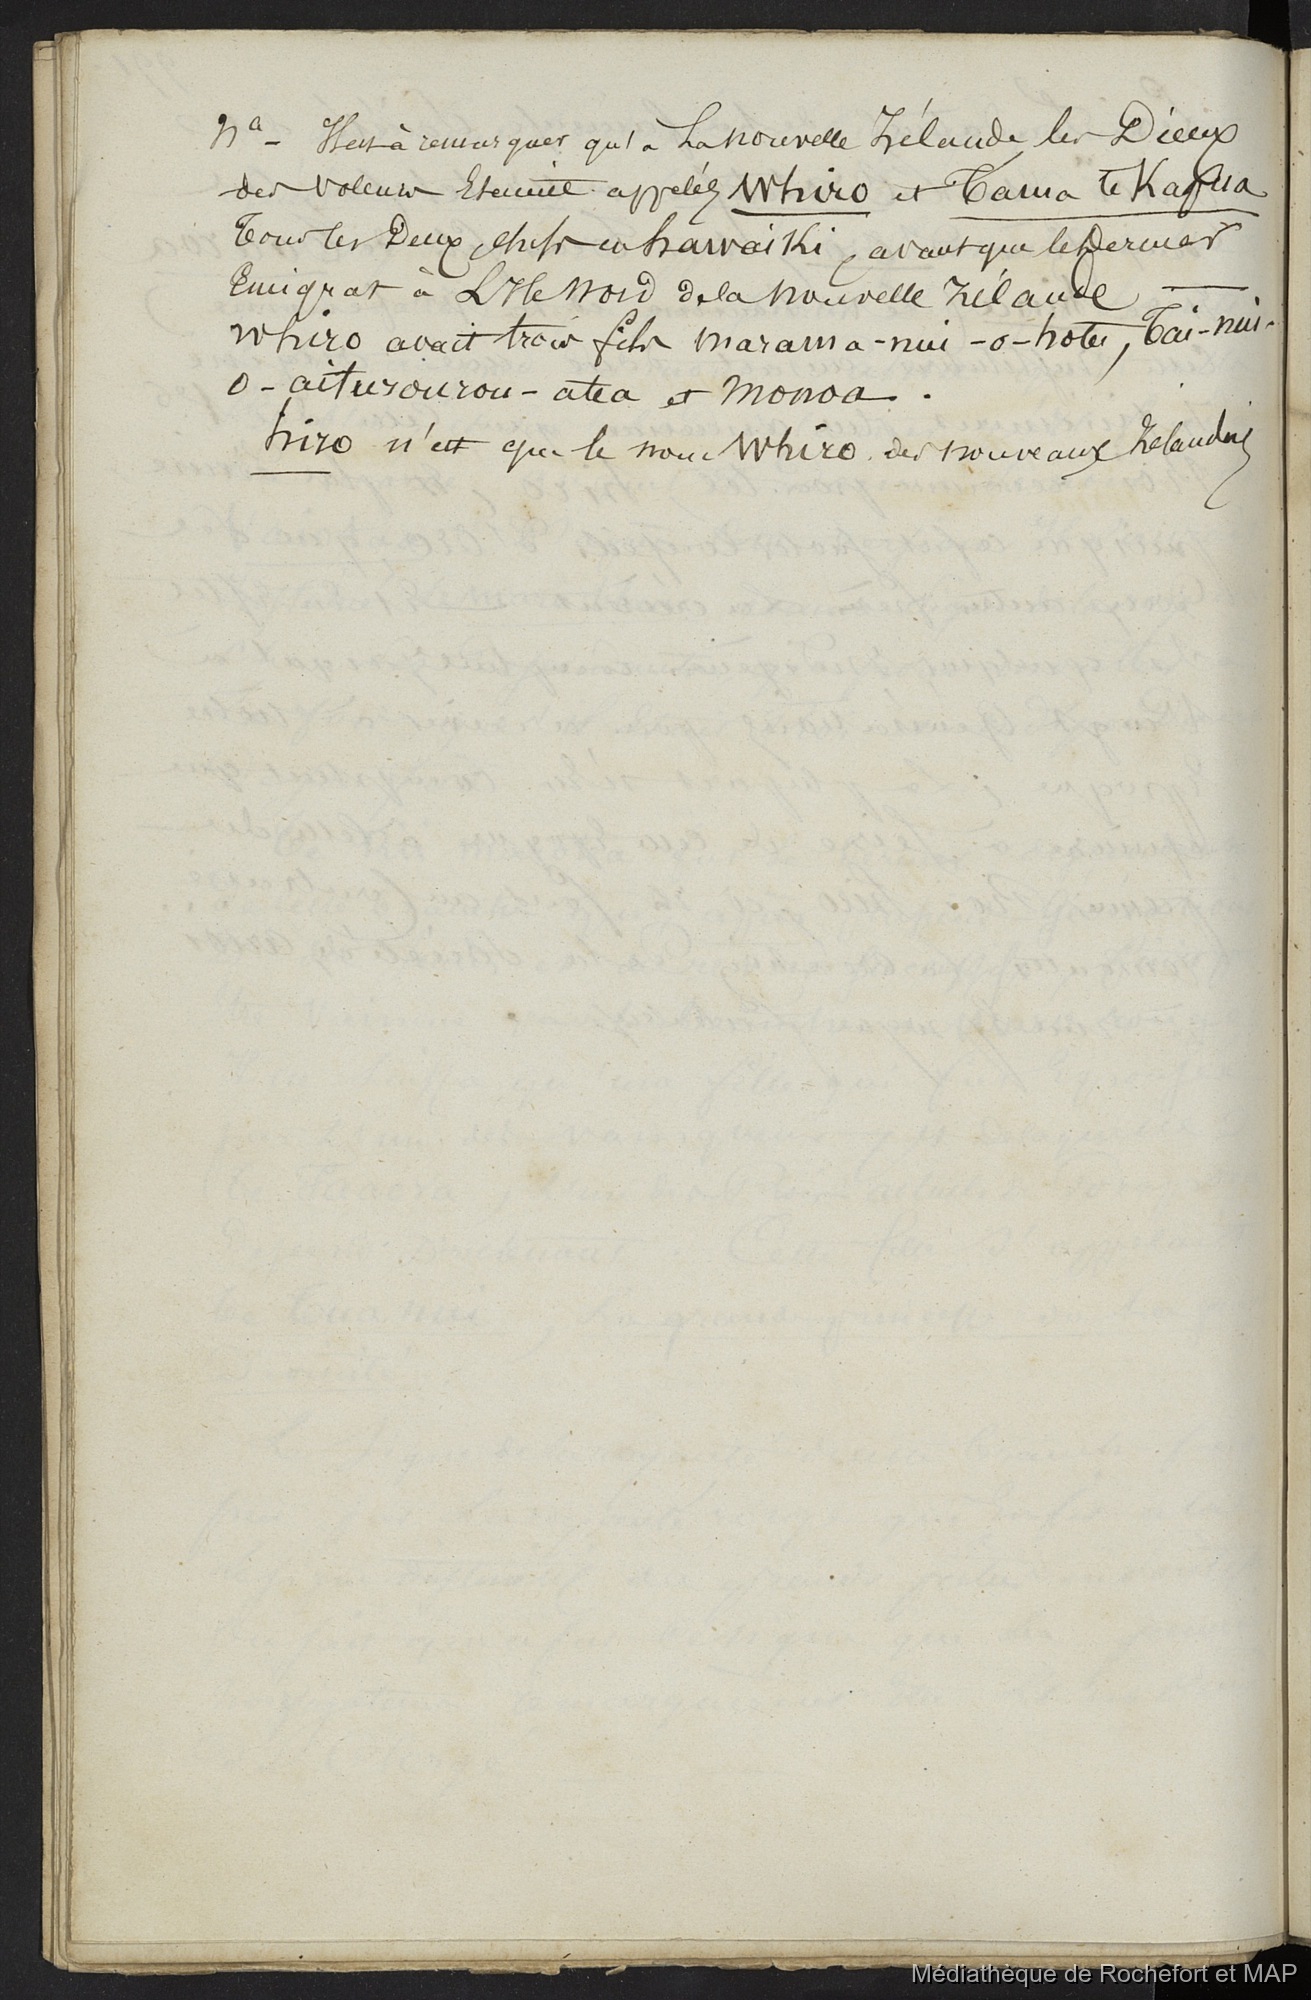 Na - Il est à remarquer qu'a La nouvelle Zélande les Dieux
des voleurs Etaient appelés Whiro et Tama te Kapua
Tous les Deux, chefs en hawaiki, avant que le Dernier
Emigrat à L'Ile Nord de la nouvelle Zélande —
Whiro avait trois fils marama-nui-o-hotu, Tai-nui-
o-aiturourou-atea et Monoa.
hiro n'est que le nom Whiro des nouveaux Zelandais
Médiathèque de Rochefort et MAP